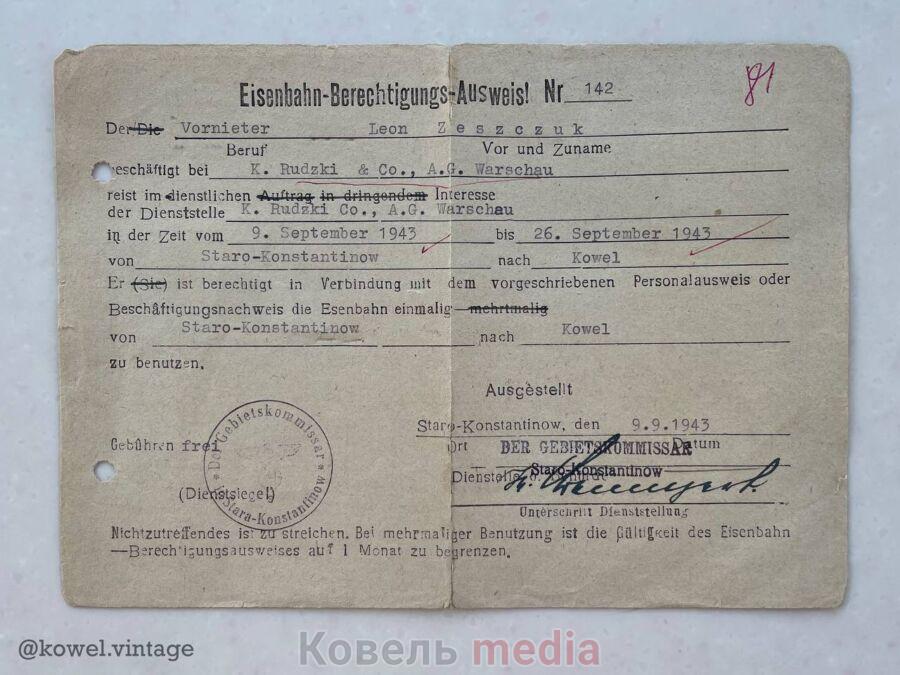 Eisenbahn-Berechtigungs-Ausweis! Nr 142
81
Der/Die Vornieter Leon Zeszczuk
Beruf Vor und Zuname
beschäftigt bei K. Rudzki & Co., A.G. Warschau
reist im dienstlichen Auftrag in dringendem Interesse
der Dienststelle K. Rudzki Co., A.G. Warschau
in der Zeit vom 9. September 1943 bis 26. September 1943
von Staro-Konstantinow nach Kowel
Er (Sie) ist berechtigt in Verbindung mit dem vorgeschriebenen Personalausweis oder
Beschäftigungsnachweis die Esenbahn einmalig mehrtmalig
von Staro-Konstantinow nach Kowel
zu benutzen.
Ausgestellt
Staro-Konstantinow, den 9.9.1943
Gebühren frei
Ort DER GEBIETSKOMMISSAR Datum
Dienstelle Staro-Konstantinow
Der Gebietskommissar
Stara-Konstantinow
(Dienstsiegel)
Unterschrift Dienststellung
Nichtzutreffendes ist zu streichen. Bei mehrmaliger Benutzung ist die Gültigkeit des Eisenbahn
—Berechtigungsausweises auf 1 Monat zu begrenzen.
@kowel.vintage
Ковель media